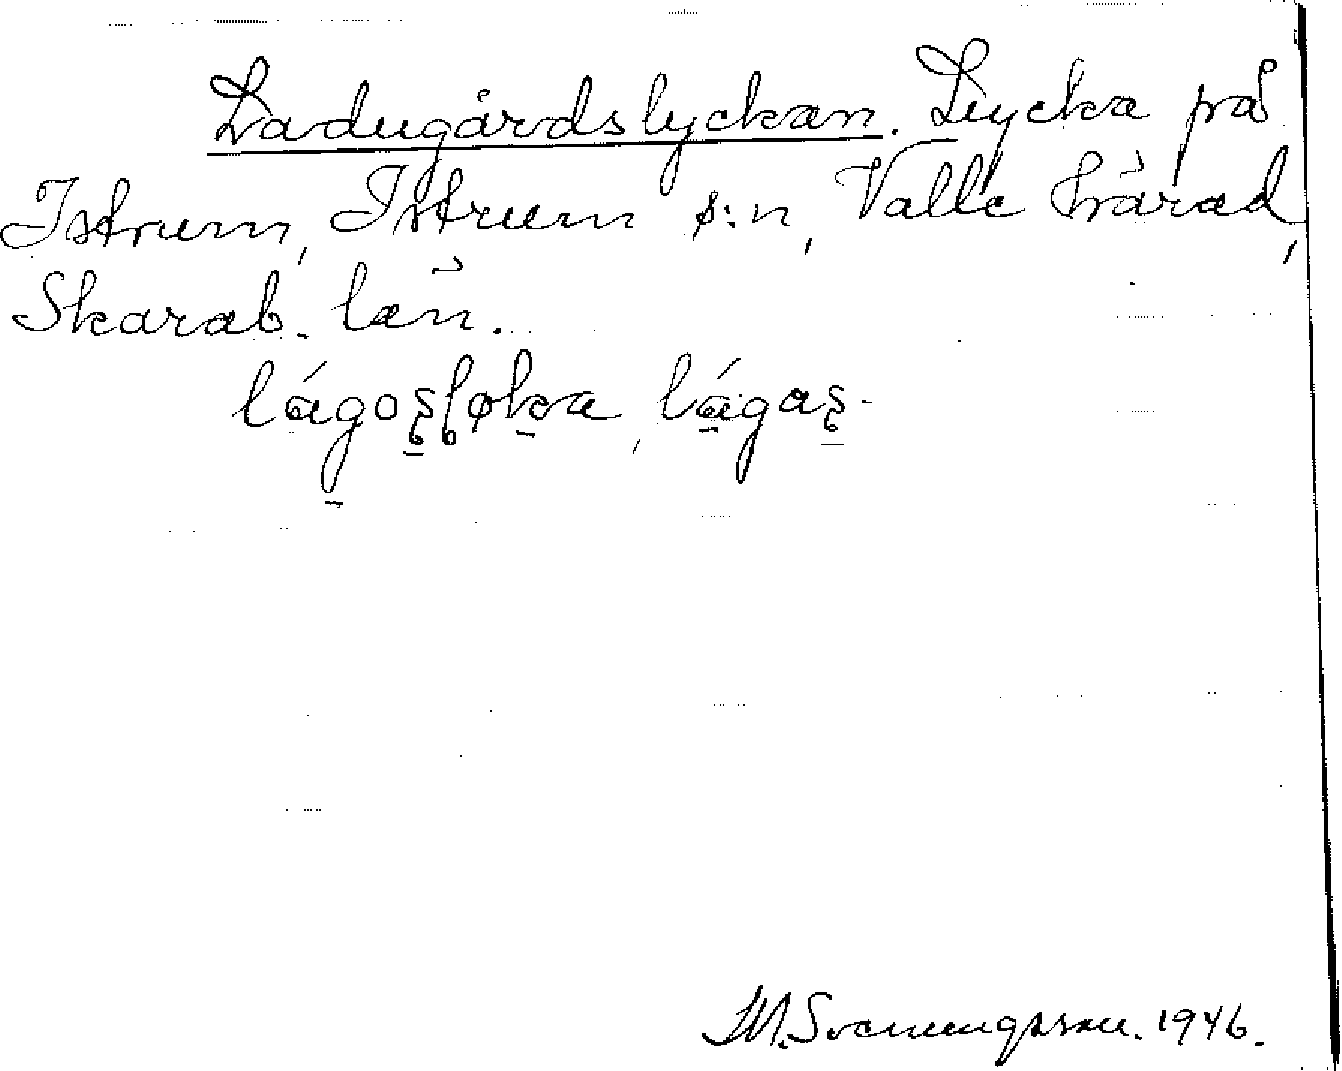 Ladugårdslyckan. Lycka på
Istrum, Istrum s:n, Valle härad,
Skarab. län.
lágoʂɭøka, lágaʂ-
M. Svenungsson. 1946.